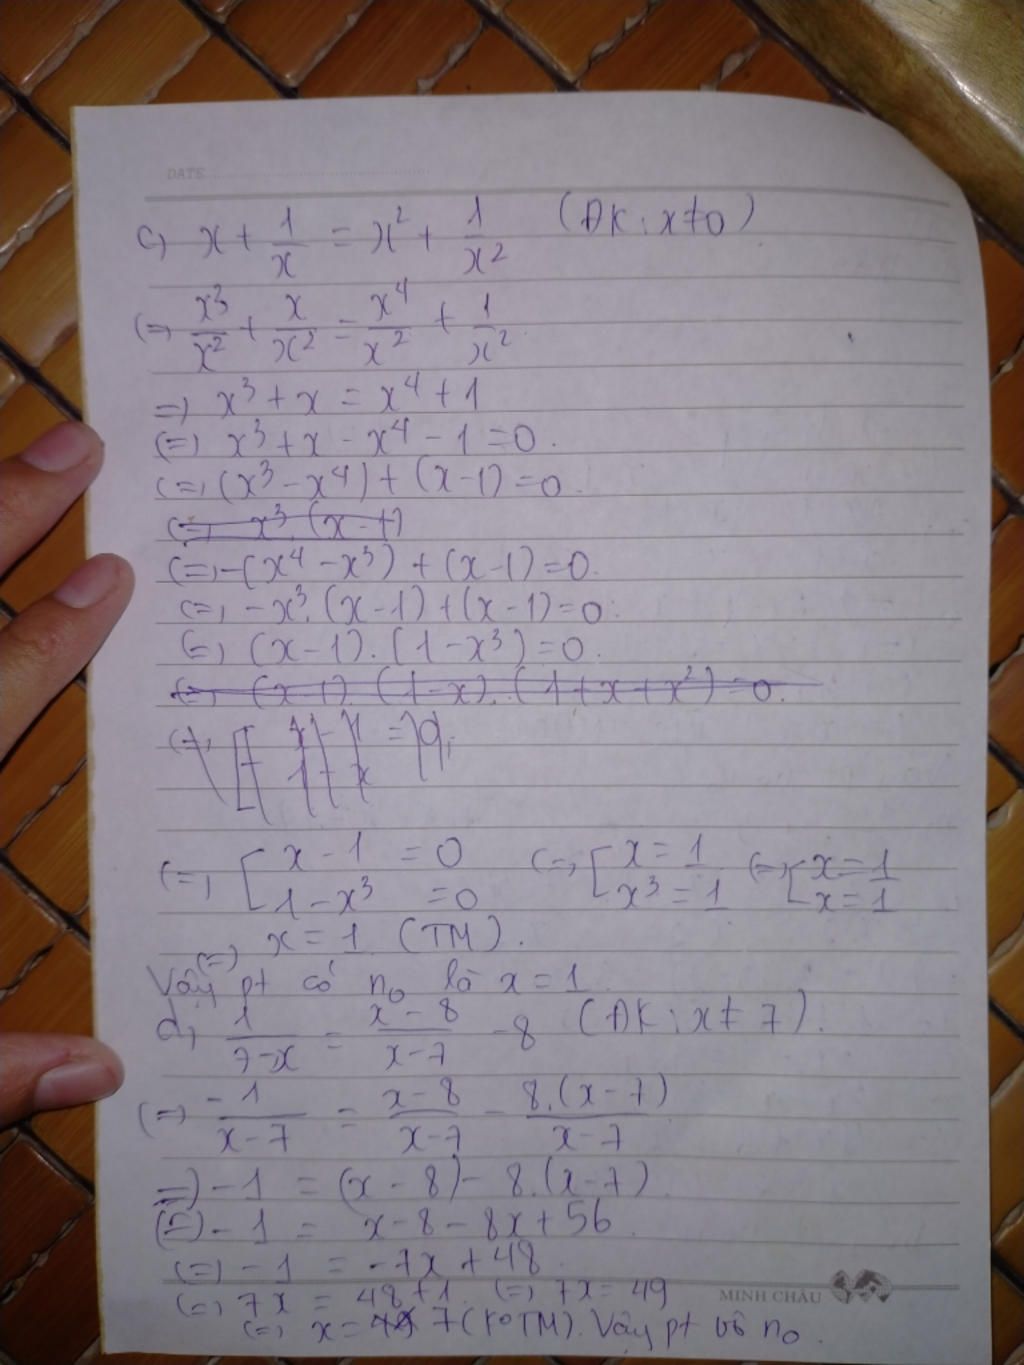 DATE
c, x + 1/x = x² + 1/x² (ĐK: x ≠ 0)
(=) x³/x² + x/x² = x⁴/x² + 1/x²
=) x³ + x = x⁴ + 1
(=) x³ + x - x⁴ - 1 = 0.
(=, (x³ - x⁴) + (x - 1) = 0.
(=, x³. (x - 1)
(=, -(x⁴ - x³) + (x - 1) = 0.
(=, -x³. (x - 1) + (x - 1) = 0.
(=, (x - 1). (1 - x³) = 0.
(=, (x - 1). (1 - x). (1 + x + x²) = 0.
(=, [ x - 1 = 0
1 - x
(=, [ x - 1 = 0 (=, [ x = 1 (=, [ x = 1
1 - x³ = 0 x³ = 1 x = 1
(=) x = 1 (TM).
Vậy pt có n₀ là x = 1
d, 1/(7-x) = (x-8)/(x-7) - 8 (ĐK: x ≠ 7).
(=) -1/(x-7) = (x-8)/(x-7) - 8.(x-7)/(x-7)
=) -1 = (x - 8) - 8.(x - 7)
(=) -1 = x - 8 - 8x + 56
(=) -1 = -7x + 48
(=, 7x = 48 + 1 (=, 7x = 49
(=, x = 7 (KoTM). Vậy pt vô n₀.
MINH CHÂU